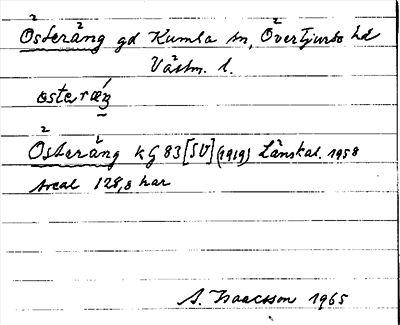 Österäng gd Kumla sn, Övertjurbo hd
Västm. l.
österäŋ
Österäng kG 83 [SV] (1919) Länskal. 1958
Areal 128,8 har
A. Isaacsson 1965